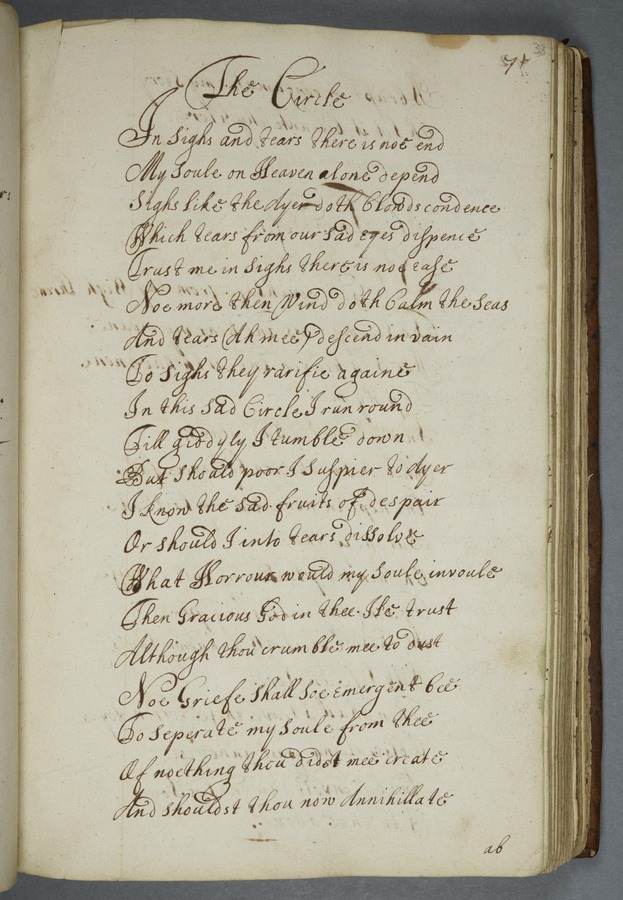 71
38
The Circle
In Sighs and tears there is noe end
My Soule on Heaven alone depend
Sighs like the Ayer doth Clowds condence
Which tears from our Sad eyes dispence
Trust me in Sighs there is noe ease
Noe more then Wind doth Calm the Seas
And tears (Ah mee) descend in vain
To Sighs they rarifie againe
In this Sad Circle I run round
Till giddyly I tumble down
But should poor I Suspier to Ayer
I know the Sad fruits of despair
Or should I into tears dissolve
What Horrour would my Soule involve
Then Gracious God in thee Ile trust
Although thou crumble mee to dust
Noe Griefe shall soe emergent bee
To Seperate my Soule from thee
Of noething thou didst mee create
And shouldst thou now Annihillate
ab